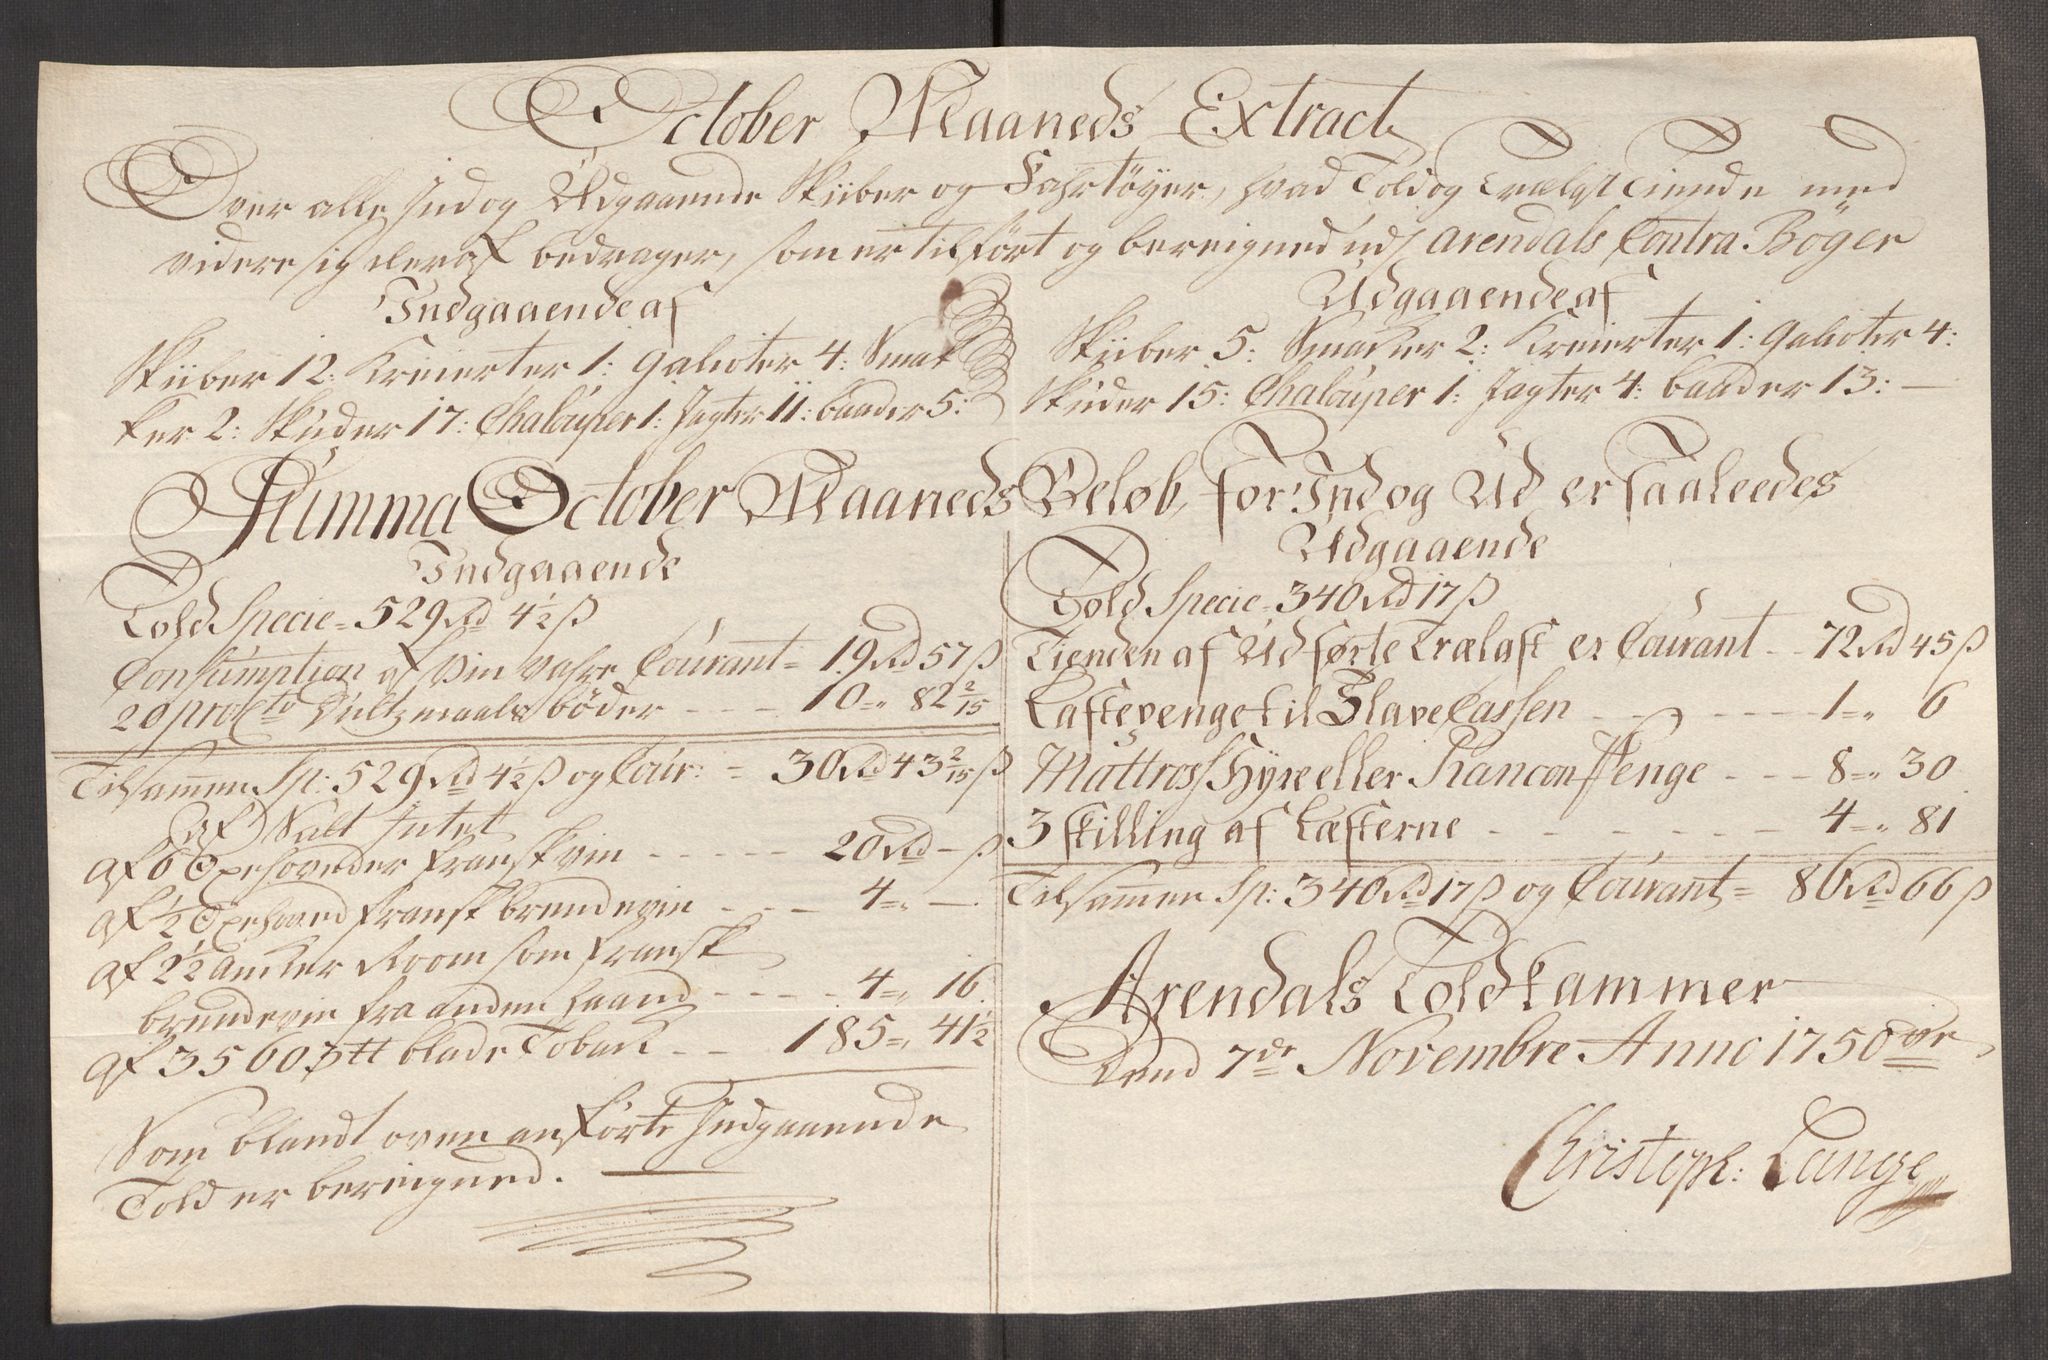 October Maaneds Extract
Over alle Ind og Udgaaende Skiiber og Fahrtöyer, hvad Told og Trælast Tiende med
videre sig deraf bedrager, som er tilfört og bereigned ud j Arendals Contra Böger
Indgaaende af
Skiiber 12: Kreierter 1: Galioter 4: Smak
ker 2: Skuder 17: Chalouper 1: Jagter 11: baader 5:
Udgaaende af
Skiiber 5: Smakker 2: Kreierter 1: Galioter 4:
Skuder 15: Chalouper 1: Jagter 4: baader 13: —
Summa October Maaneds Beløb, for Ind og Ud er saaleedes
Indgaaende
Told Specie = 529 rd 4½ ß
Consumption af Vin vahre Courant = 19 rd 57 ß
20 pro Cto bøder - - - 10 =„ 82 2/15
Tilsammen Sp: 529 rd 4½ ß og Cour: = 30 rd 43 2/15 ß
Af Salt Intet
af 6 Oxehoveder fransk vin - - - - - 20 rd - ß
af ½ Oxehoved fransk brendevin - - - 4 =„ —
af 2½ Ancker Room som fransk
brendevin fra anden haand - - - - 4 =„ 16
af 35603 tt blade Toback - - 185 =„ 41½
Som blandt oven anförte Indgaaende
Told er bereigned.
Udgaaende
Told Specie = 340 rd 17 ß
Tienden af Udførte Trælast er Courant - - 72 rd 45 ß
Lastepenge til Slave Cassen - - - - - - 1 =„ 6
Mattross Hyre eller Rancon Penge - - - 8 =„ 30
3 skilling af Læsterne - - - - - - - 4 =„ 81
Tilsammen Sp: 340 rd 17 ß og Courant = 86 rd 66 ß
Arendals Toldkammer
Dend 7de Novembre Anno 1750
Christoph: Lange